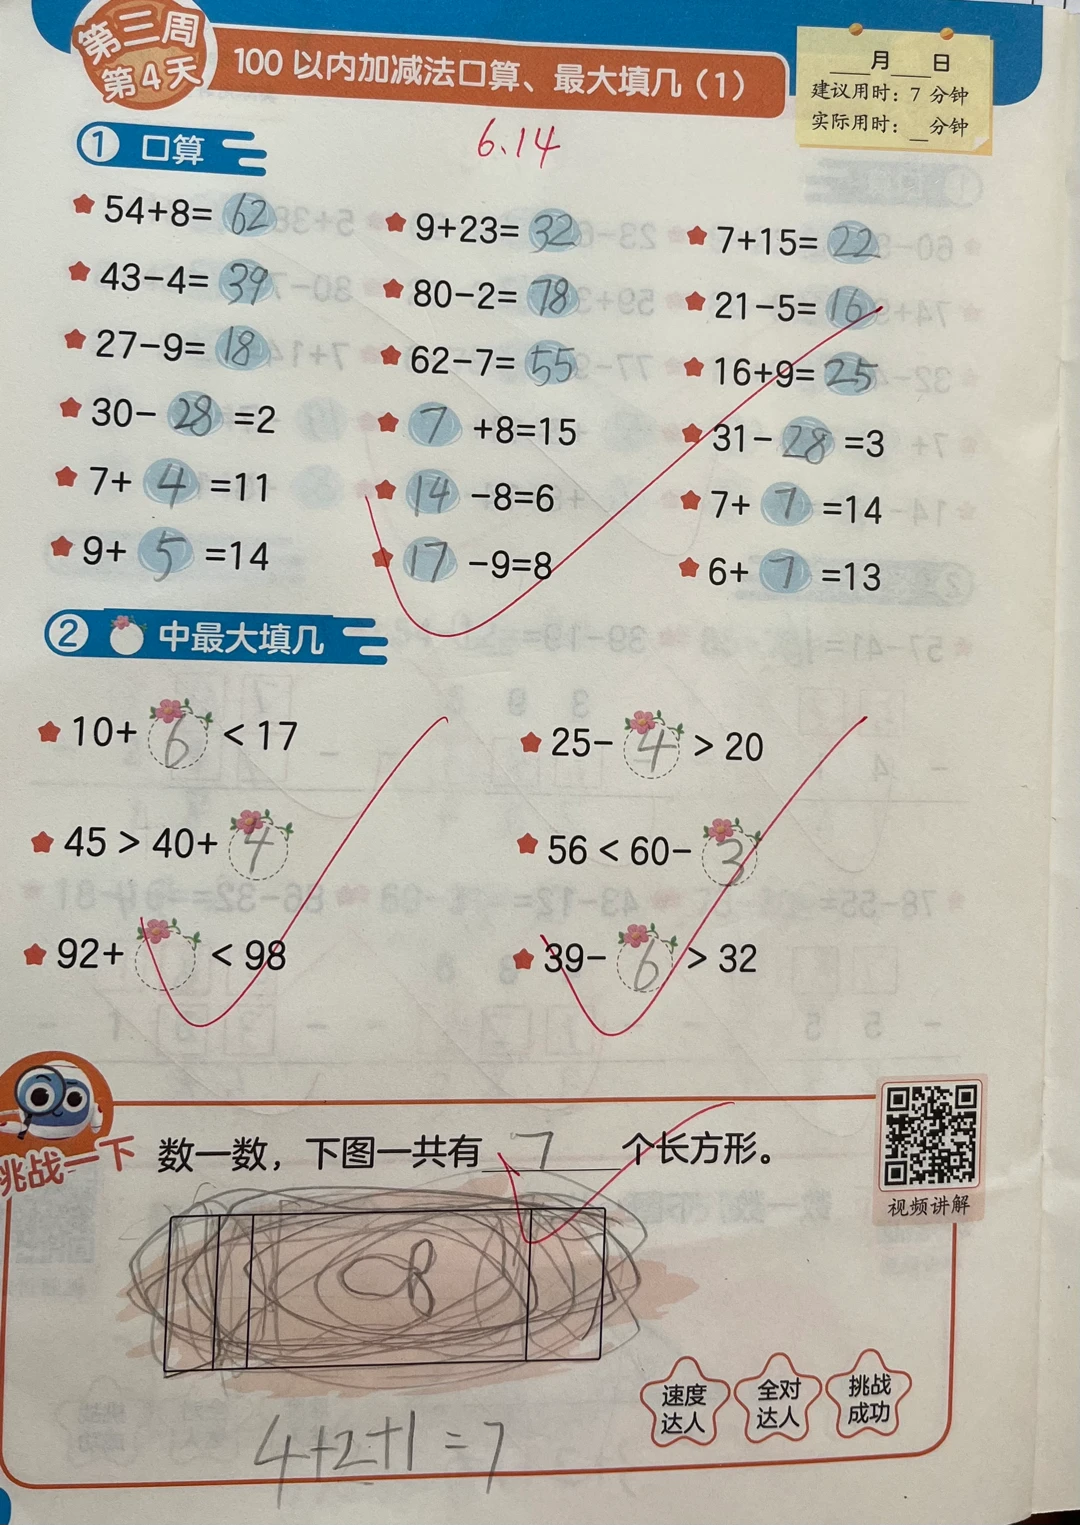 第三周
第4天
100以内加减法口算、最大填几（1）
___月___日
建议用时：7分钟
实际用时：_分钟
6.14
① 口算
54+8=62 9+23=32 7+15=22
43-4=39 80-2=78 21-5=16
27-9=18 62-7=55 16+9=25
30-28=2 7+8=15 31-28=3
7+4=11 14-8=6 7+7=14
9+5=14 17-9=8 6+7=13
② 中最大填几
10+6<17 25-4>20
45>40+4 56<60-3
92+ <98 39-6>32
挑战一下 数一数，下图一共有 7 个长方形。
视频讲解
8
速度达人 全对达人 挑战成功
4+2+1=7